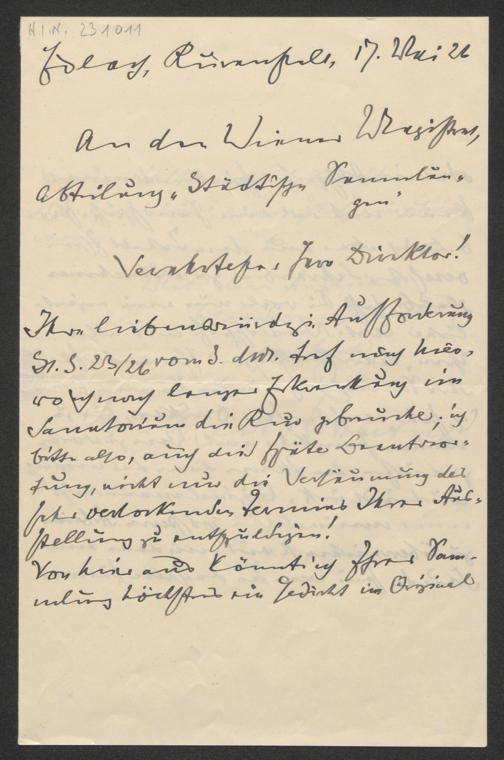 H.I.N. 231011
Edlach, Kuranstalt, 17. Mai 26
An den Wiener Magistrat,
Abteilung „Städtische Sammlun-
gen“
Verehrtester Herr Direktor!
Ihre liebenswürdige Aufforderung
St. S. 23/26 vom 3. ds. traf mich hier,
wo ich nach langer Erkrankung im
Sanatorium die Kur gebrauche; ich
bitte also, auch die späte Beantwor-
tung, nicht nur die Versäumung des
sehr verlockenden Termins Ihrer Aus-
stellung zu entschuldigen!
Von hier aus könnte ich Ihrer Sam-
mlung höchstens ein Gedicht im Original